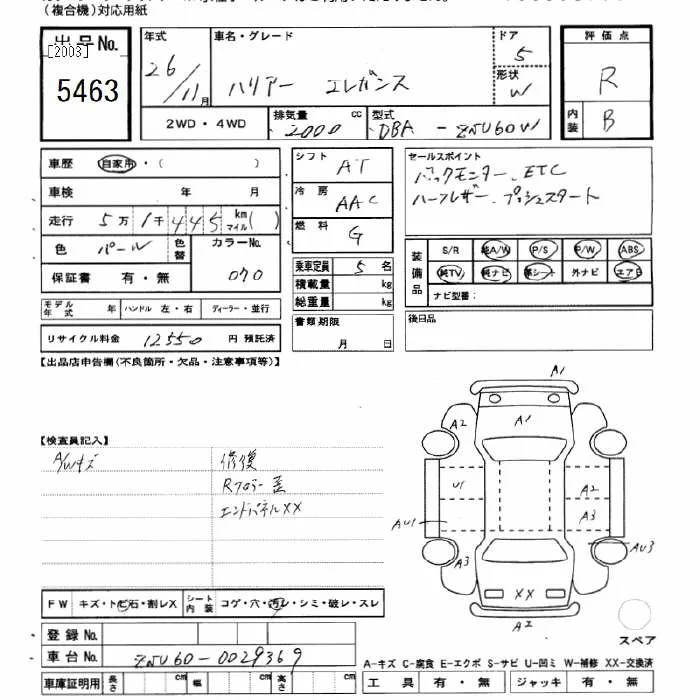 (複合機)対応用紙
出品No.
[2003]
5463
年式
26/11月
車名・グレード
ハリアー エレガンス
ドア
5
形状
W
評価点
R
内装
B
2WD・4WD
排気量
2000 cc
型式
DBA - ZSU60W
車歴 自家用・( )
車検 年 月
走行 5万1千445 km マイル( )
色 パール 色替 カラーNo.
070
保証書 有・無
シフト AT
冷房 AAC
燃料 G
乗車定員 5名
積載量 kg
総重量 kg
セールスポイント
バックモニター、ETC
ハーフレザー、プッシュスタート
装備品
S/R 純A/W P/S P/W ABS
純TV 純ナビ 革シート 外ナビ エアB
ナビ型番:
モデル年式 年 ハンドル 左・右 ディーラー・並行
書類期限
月 日
後日品
リサイクル料金 12550 円 預託済
【出品店申告欄(不良箇所・欠品・注意事項等)】
【検査員記入】
A/Wキズ
修復
Rフロアー 歪
エンドパネルXX
A1
A2
A1
U1
A2
A3
AU1
AU3
A3
XX
A2
スペア
FW キズ・トビ石・割レX シート内装 コゲ・穴・汚レ・シミ・破レ・スレ
登録No.
車台No. ZSU60-0029369
A-キズ C-腐食 E-エクボ S-サビ U-凹ミ W-補修 XX-交換済
車庫証明用 長さ cm 幅 cm 高さ cm
工具 有・無 ジャッキ 有・無